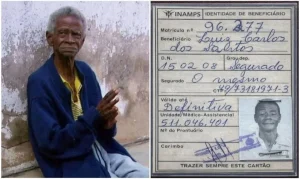 INAMPS IDENTIDADE DE BENEFICIÁRIO
Matrícula nº 96.277
Beneficiário Luiz Carlos
dos Santos
D.N. Grau Dep.
15 02 08 Segurado
Segurado
O mesmo
Válido até 48/73181971-3
Definitiva
Unidade Médico-Assistencial
511.046.401
Nº do Prontuário
Carimbo
TRAZER SEMPRE ESTE CARTÃO